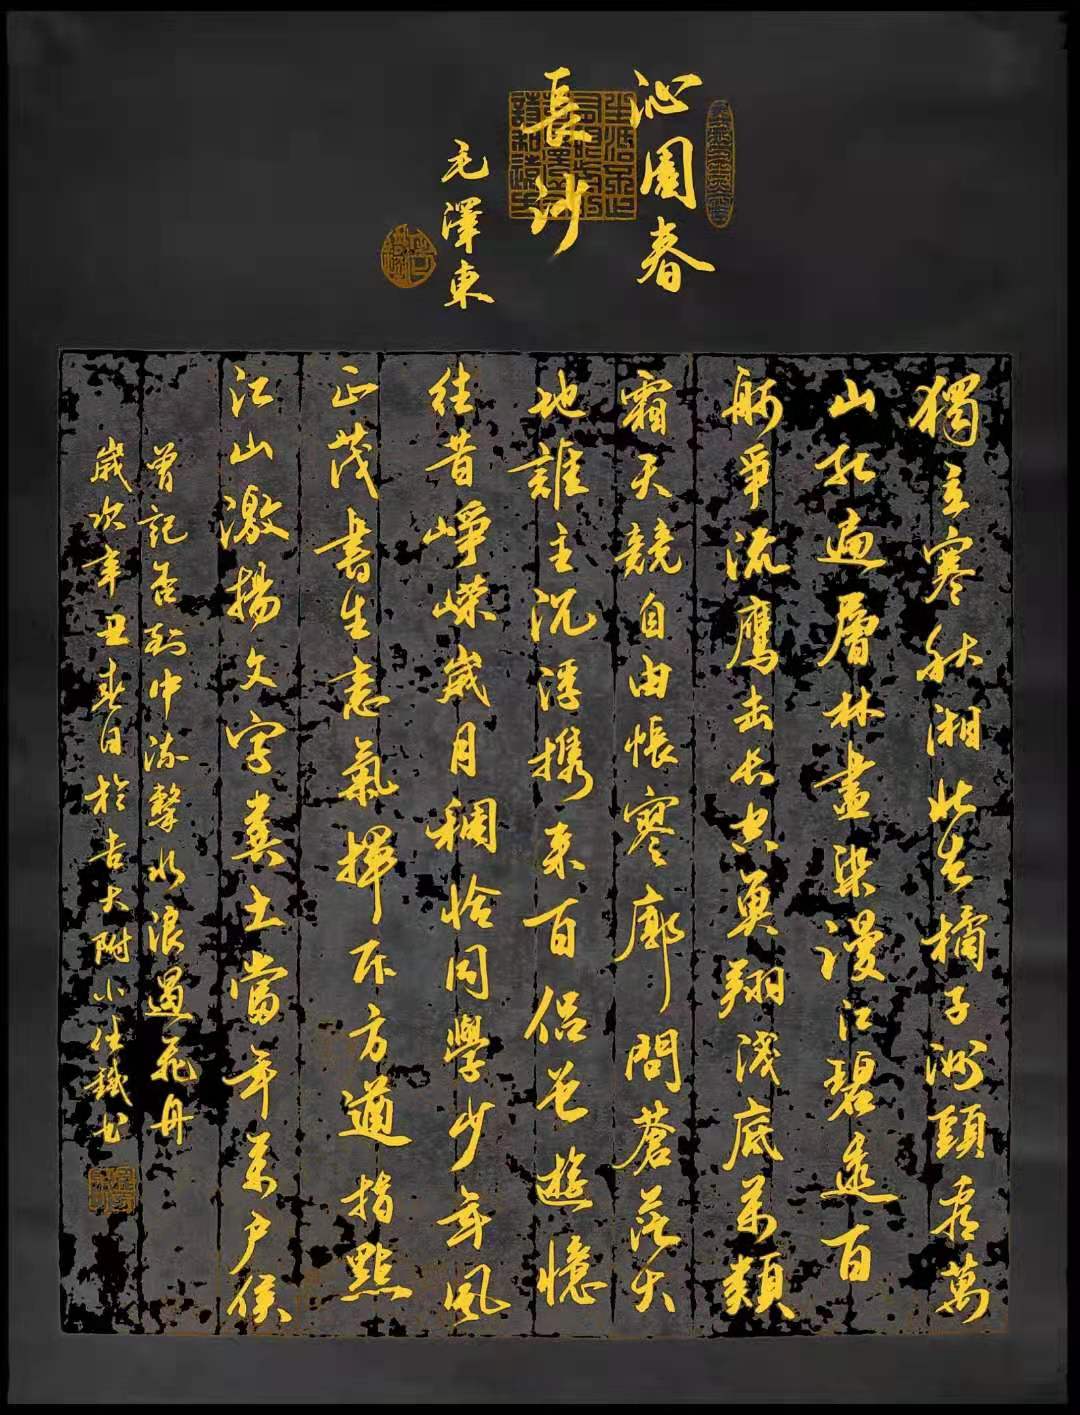 沁園春
長沙
毛澤東
獨立寒秋湘北去橘子洲頭看萬
山紅遍層林盡染漫江碧透百
舸爭流鹰击长空魚翔淺底万類
霜天競自由悵寥廓問蒼茫大
地誰主沉浮携来百侣曾遊憶
往昔崢嶸歲月稠恰同學少年風
正茂書生意氣揮斥方遒指點
江山激揚文字粪土當年万户侯
曾記否到中流擊水浪遏飛舟
歲次辛丑春日於吉大附小鐵书